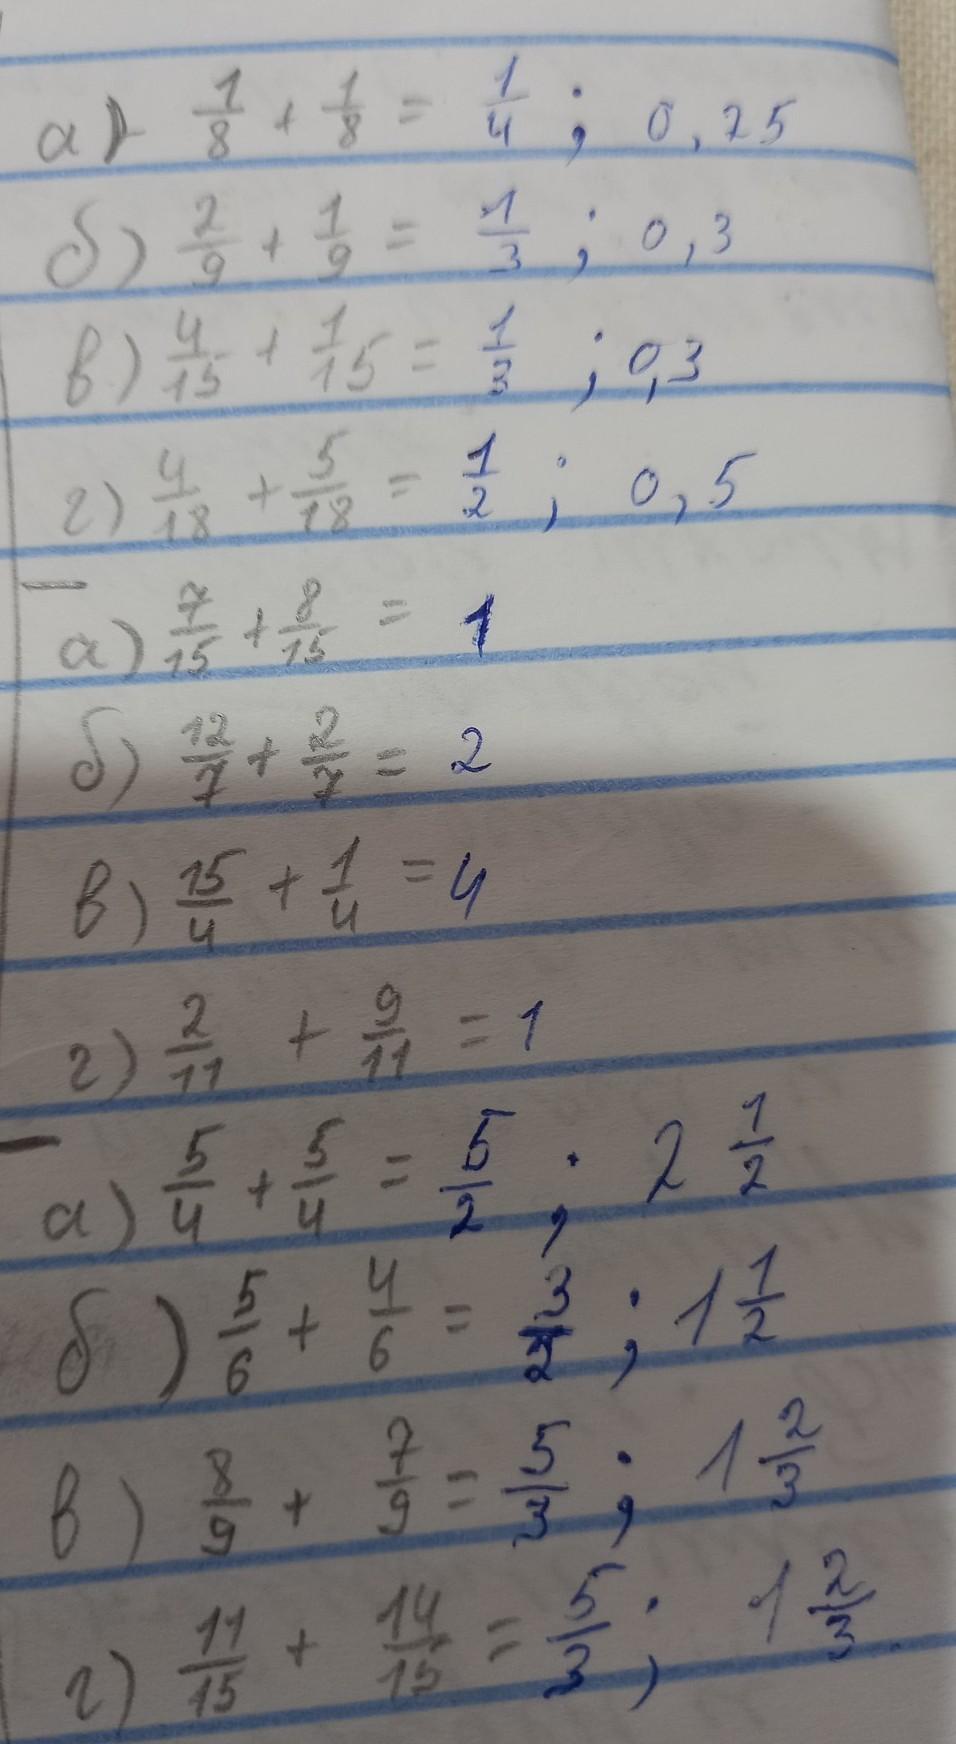 а) 1/8 + 1/8 = 1/4 ; 0,25
б) 2/9 + 1/9 = 1/3 ; 0,3
в) 4/15 + 1/15 = 1/3 ; 0,3
г) 4/18 + 5/18 = 1/2 ; 0,5
а) 7/15 + 8/15 = 1
б) 12/7 + 2/7 = 2
в) 15/4 + 1/4 = 4
г) 2/11 + 9/11 = 1
а) 5/4 + 5/4 = 5/2 ; 2 1/2
б) 5/6 + 4/6 = 3/2 ; 1 1/2
в) 8/9 + 7/9 = 5/3 ; 1 2/3
г) 11/15 + 14/15 = 5/3 ; 1 2/3